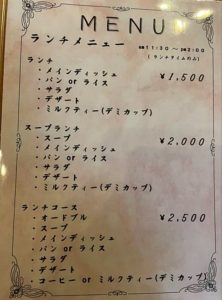 MENU
ランチメニュー
am11:30 ～ pm2:00
(ランチタイムのみ)
ランチ
・メインディッシュ
・パン or ライス
・サラダ
・デザート
・ミルクティー(デミカップ)
¥1,500
スープランチ
・スープ
・メインディッシュ
・パン or ライス
・サラダ
・デザート
・ミルクティー(デミカップ)
¥2,000
ランチコース
・オードブル
・スープ
・メインディッシュ
・パン or ライス
・サラダ
・デザート
・コーヒー or ミルクティー(デミカップ)
¥2,500